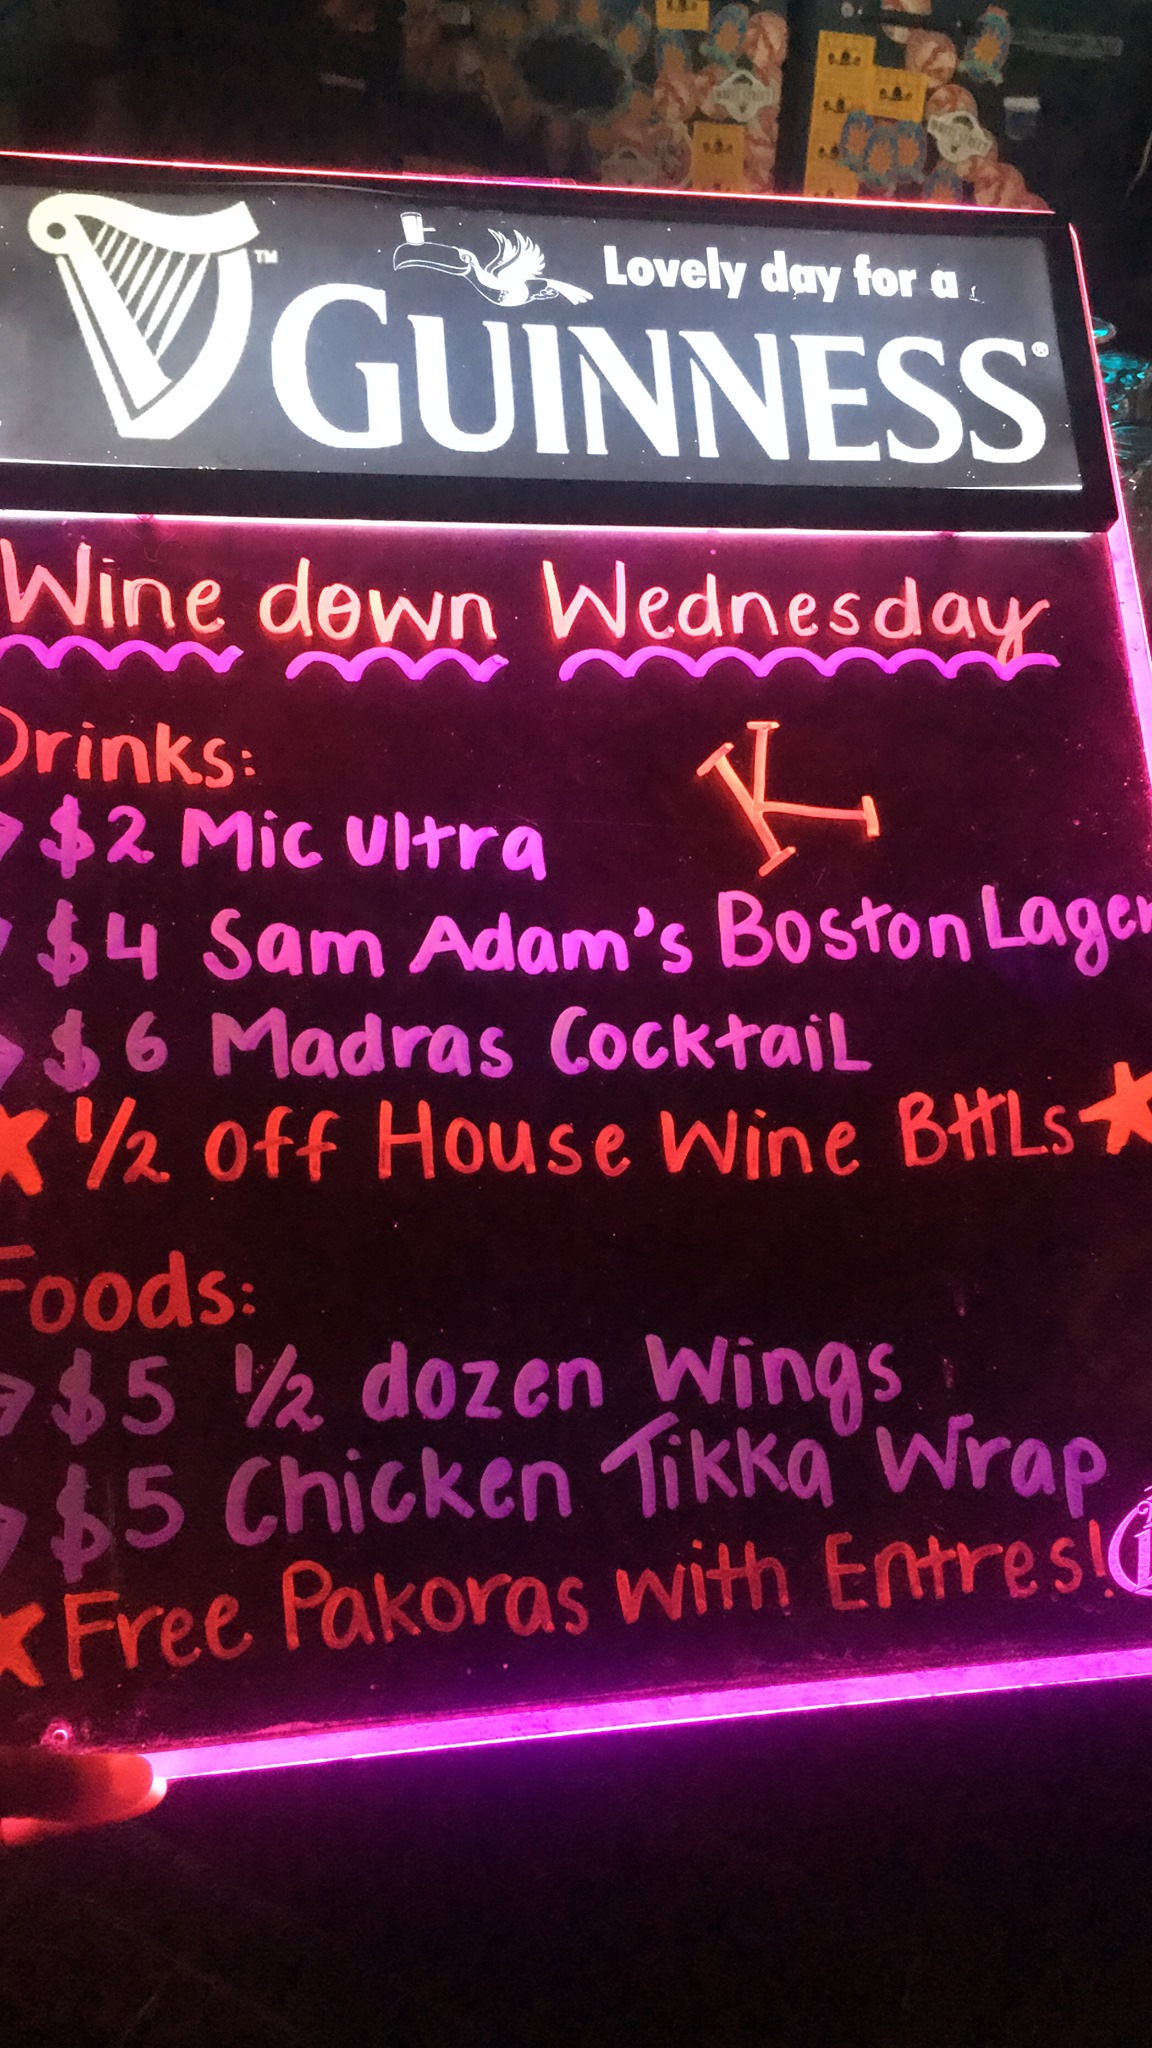 Lovely day for a
GUINNESS®
Wine down Wednesday
Drinks:
$2 Mic Ultra
$4 Sam Adam's Boston Lager
$6 Madras Cocktail
1/2 off House Wine BttLs
Foods:
$5 1/2 dozen Wings
$5 Chicken Tikka Wrap
Free Pakoras with Entres!